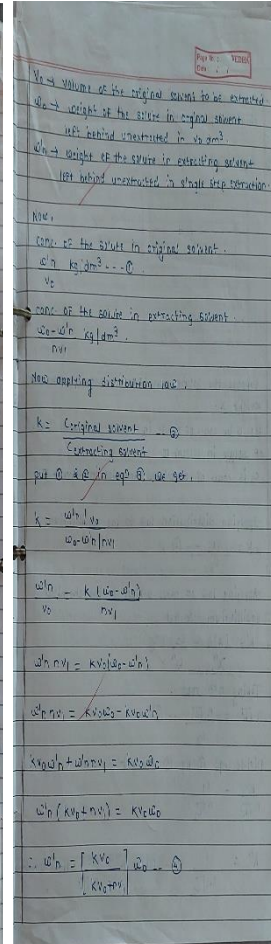 Page No.:
Date
V₀ → volume of the original solvent to be extracted
ω₀ → weight of the solute in orginal solvent
left behind unextracted in V₀ dm³.
ω'n → weight of the solute in extracting solvent
left behind unextracted in single step extraction.
Now,
conc. of the solute in original solvent.
ω'n / V₀ kg/dm³ --- ①
conc. of the solute in extracting solvent.
ω₀-ω'n / nV₁ kg/dm³.
Now applying distribution law.
K = Coriginal solvent / Cextracting solvent -- ③
put ① & ② in eqⁿ ③, we get,
K = ω'n / V₀ / ω₀-ω'n / nV₁
ω'n / V₀ = K (ω₀-ω'n) / nV₁
ω'n nV₁ = KV₀(ω₀-ω'n)
ω'n nV₁ = KV₀ω₀ - KV₀ω'n
KV₀ω'n + ω'n nV₁ = KV₀ω₀
ω'n (KV₀+nV₁) = KV₀ω₀
∴ ω'n = [KV₀ / KV₀+nV₁] ω₀ -- ④